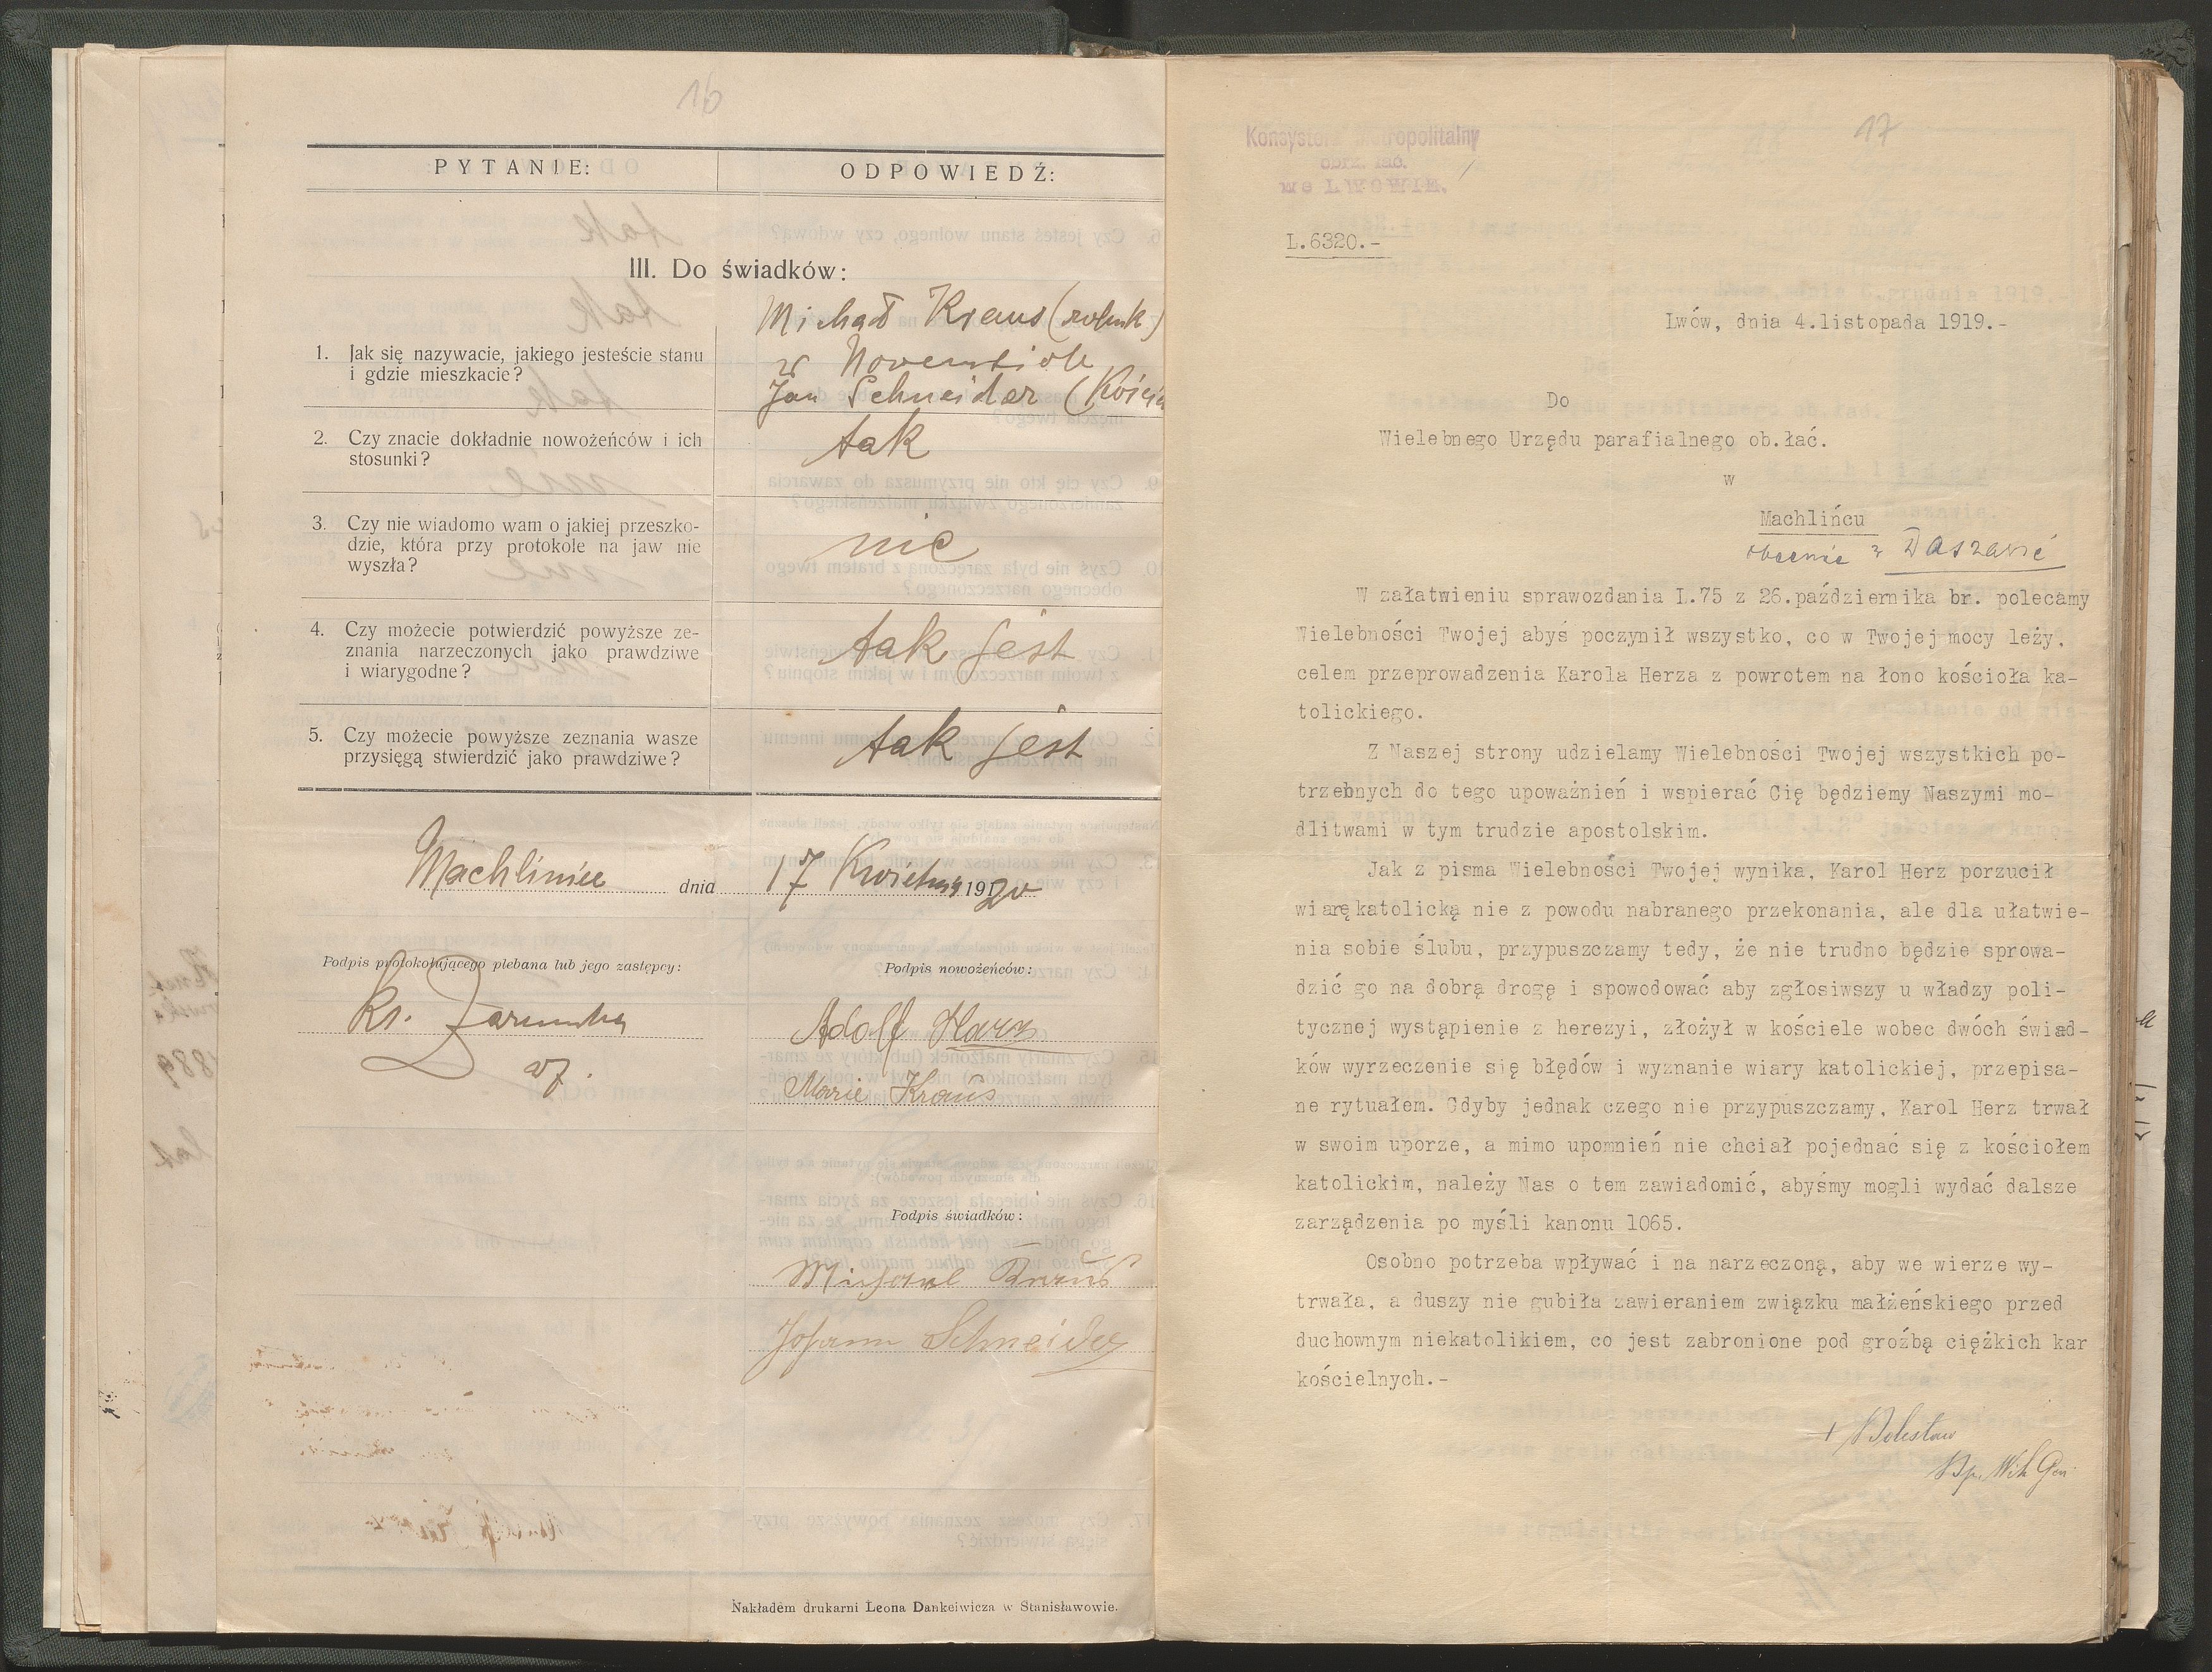 16
PYTANIE: ODPOWIEDŹ:
III. Do świadków:
1. Jak się nazywacie, jakiego jesteście stanu
i gdzie mieszkacie?
Michał Kraus (rolnik)
w
Jan Schneider
2. Czy znacie dokładnie nowożeńców i ich
stosunki?
tak
3. Czy nie wiadomo wam o jakiej przeszko-
dzie, która przy protokole na jaw nie
wyszła?
nie
4. Czy możecie potwierdzić powyższe ze-
znania narzeczonych jako prawdziwe
i wiarygodne?
tak jest
5. Czy możecie powyższe zeznania wasze
przysięgą stwierdzić jako prawdziwe?
tak jest
Machliniec dnia 17 Kwietnia 1920
Podpis protokołującego plebana lub jego zastępcy:
Ks.
Podpis nowożeńców:
Adolf
Marie Kraus
Podpis świadków:
Johann Schneider
Nakładem drukarni Leona Dankeiwicza w Stanisławowie.
17
Konsystorz Metropolitalny
obrz. łać.
we LWOWIE.
L.6320.-
Lwów, dnia 4.listopada 1919.-
Do
Wielebnego Urzędu parafialnego ob.łać.
w
Machlińcu
obecnie w Daszawie
W załatwieniu sprawozdania L.75 z 26.października br. polecamy
Wielebności Twojej abyś poczynił wszystko, co w Twojej mocy leży,
celem przeprowadzenia Karola Herza z powrotem na łono kościoła ka-
tolickiego.
Z Naszej strony udzielamy Wielebności Twojej wszystkich po-
trzebnych do tego upoważnień i wspierać Cię będziemy Naszymi mo-
dlitwami w tym trudzie apostolskim.
Jak z pisma Wielebności Twojej wynika, Karol Herz porzucił
wiarę katolicką nie z powodu nabranego przekonania, ale dla ułatwie-
nia sobie ślubu, przypuszczamy tedy, że nie trudno będzie sprowa-
dzić go na dobrą drogę i spowodować aby zgłosiwszy u władzy poli-
tycznej wystąpienie z herezyi, złożył w kościele wobec dwóch świad-
ków wyrzeczenie się błędów i wyznanie wiary katolickiej, przepisa-
ne rytuałem. Gdyby jednak czego nie przypuszczamy, Karol Herz trwał
w swoim uporze, a mimo upomnień nie chciał pojednać się z kościołem
katolickim, należy Nas o tem zawiadomić, abyśmy mogli wydać dalsze
zarządzenia po myśli kanonu 1065.
Osobno potrzeba wpływać i na narzeczoną, aby we wierze wy-
trwała, a duszy nie gubiła zawieraniem związku małżeńskiego przed
duchownym niekatolikiem, co jest zabronione pod groźbą ciężkich kar
kościelnych.-
+ Bolesław
Bp. Wik Gen